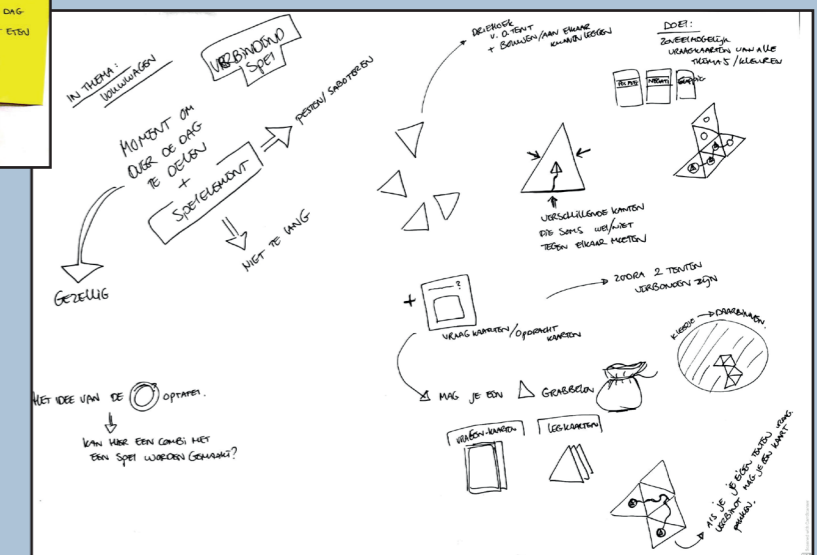 DAG
ETEN
IN THEMA:
VOUWWAGEN
VERBINDEND
SPEL
MOMENT OM
OVER DE DAG
TE DELEN
+
SPELELEMENT
PESTEN/SABOTEREN
NIET TE LANG
GEZELLIG
HET IDEE VAN DE OP TAFEL.
KAN HIER EEN COMBI MET
EEN SPEL WORDEN GEMAAKT?
DRIEHOEK
V. D TENT
+ BOUWEN/AAN ELKAAR
KUNNEN LEGGEN
DOEL:
ZOVEEL MOGELIJK
VRAAGKAARTEN VAN ALLE
THEMA'S/KLEUREN
VERSCHILLENDE KANTEN
DIE SOMS WEL/NIET
TEGEN ELKAAR MOETEN
+
?
VRAAG KAARTEN/OPDRACHT
KAARTEN
ZODRA 2 TENTEN
VERBONDEN ZIJN
MAG JE EEN GRABBELEN
KLEEDJE DAARBINNEN.
VRAGEN-KAARTEN
LEGKAARTEN
ALS JE JE EIGEN TENTEN
VERBINDT MAG JE EEN KAART
PAKKEN.